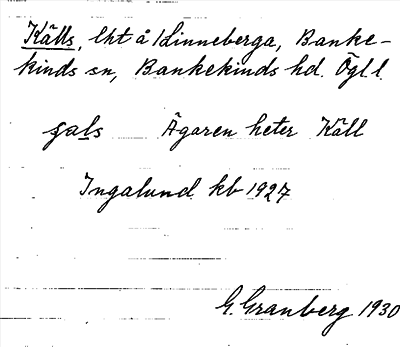 Källs, lht å Linneberga, Banke-
kinds sn, Bankekinds hd. Ögl l.
Ägaren heter Käll
Ingalund kb 1927
G. Granberg 1930